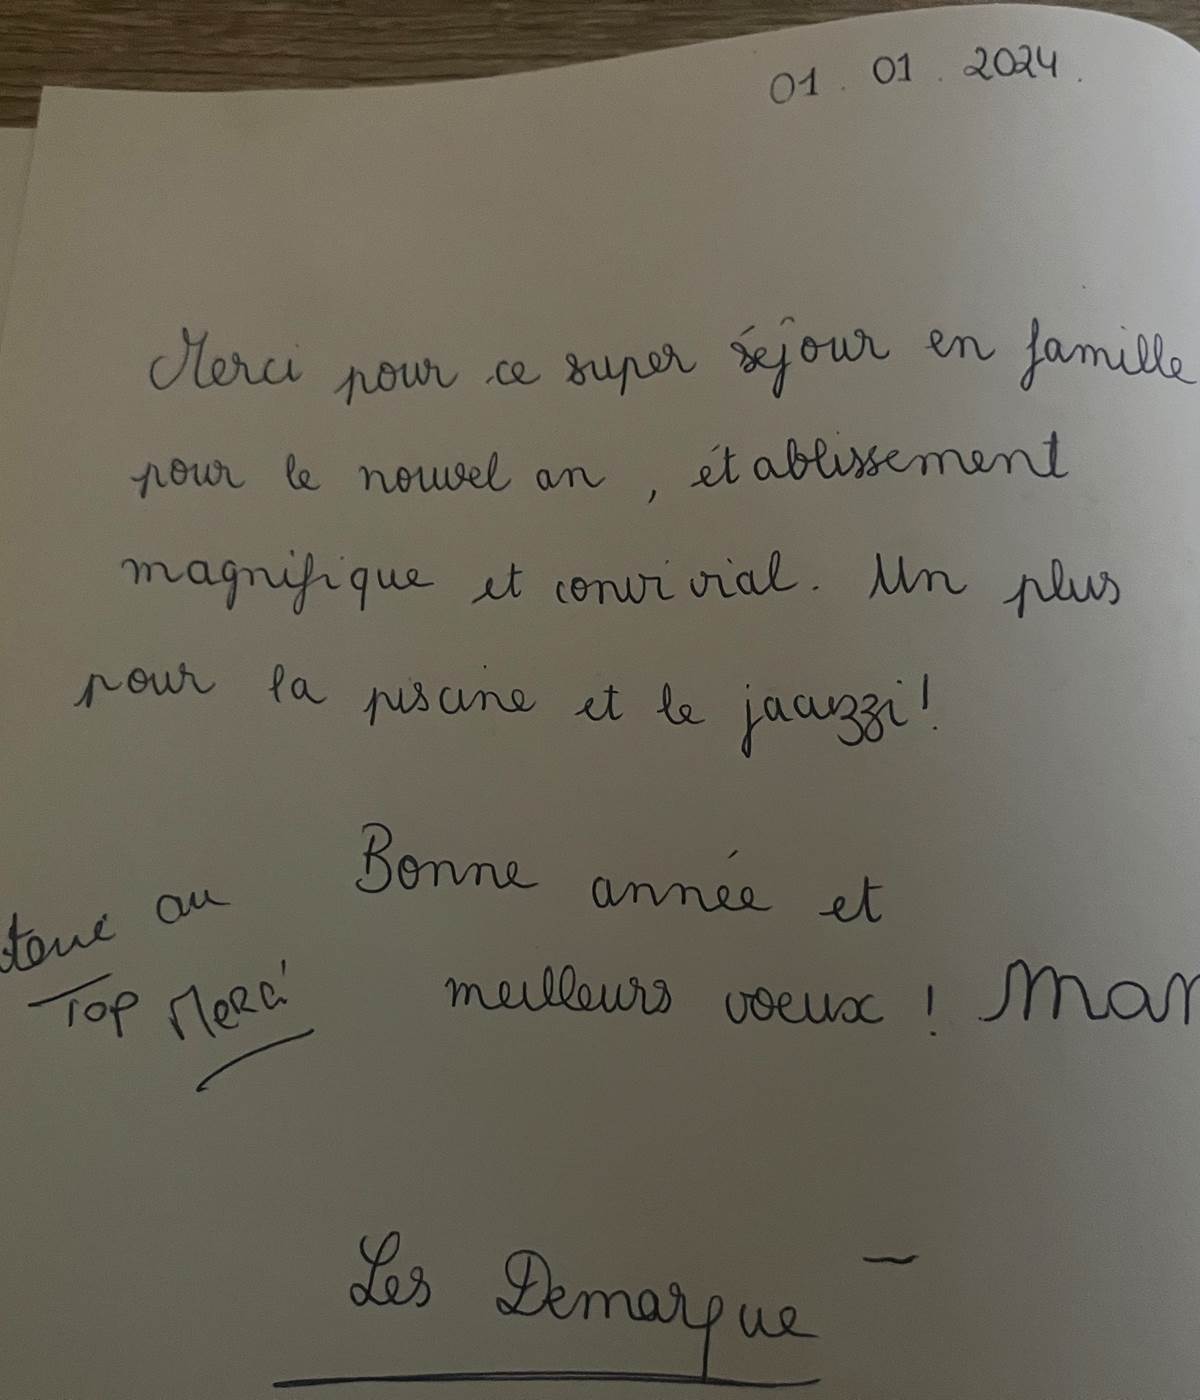 01.01.2024.
Merci pour ce super séjour en famille
pour le nouvel an, établissement
magnifique et convivial. Un plus
pour la piscine et le jacuzzi!
Bonne année et
au
meilleurs voeux ! Mar
Top Merci
Les Demarque